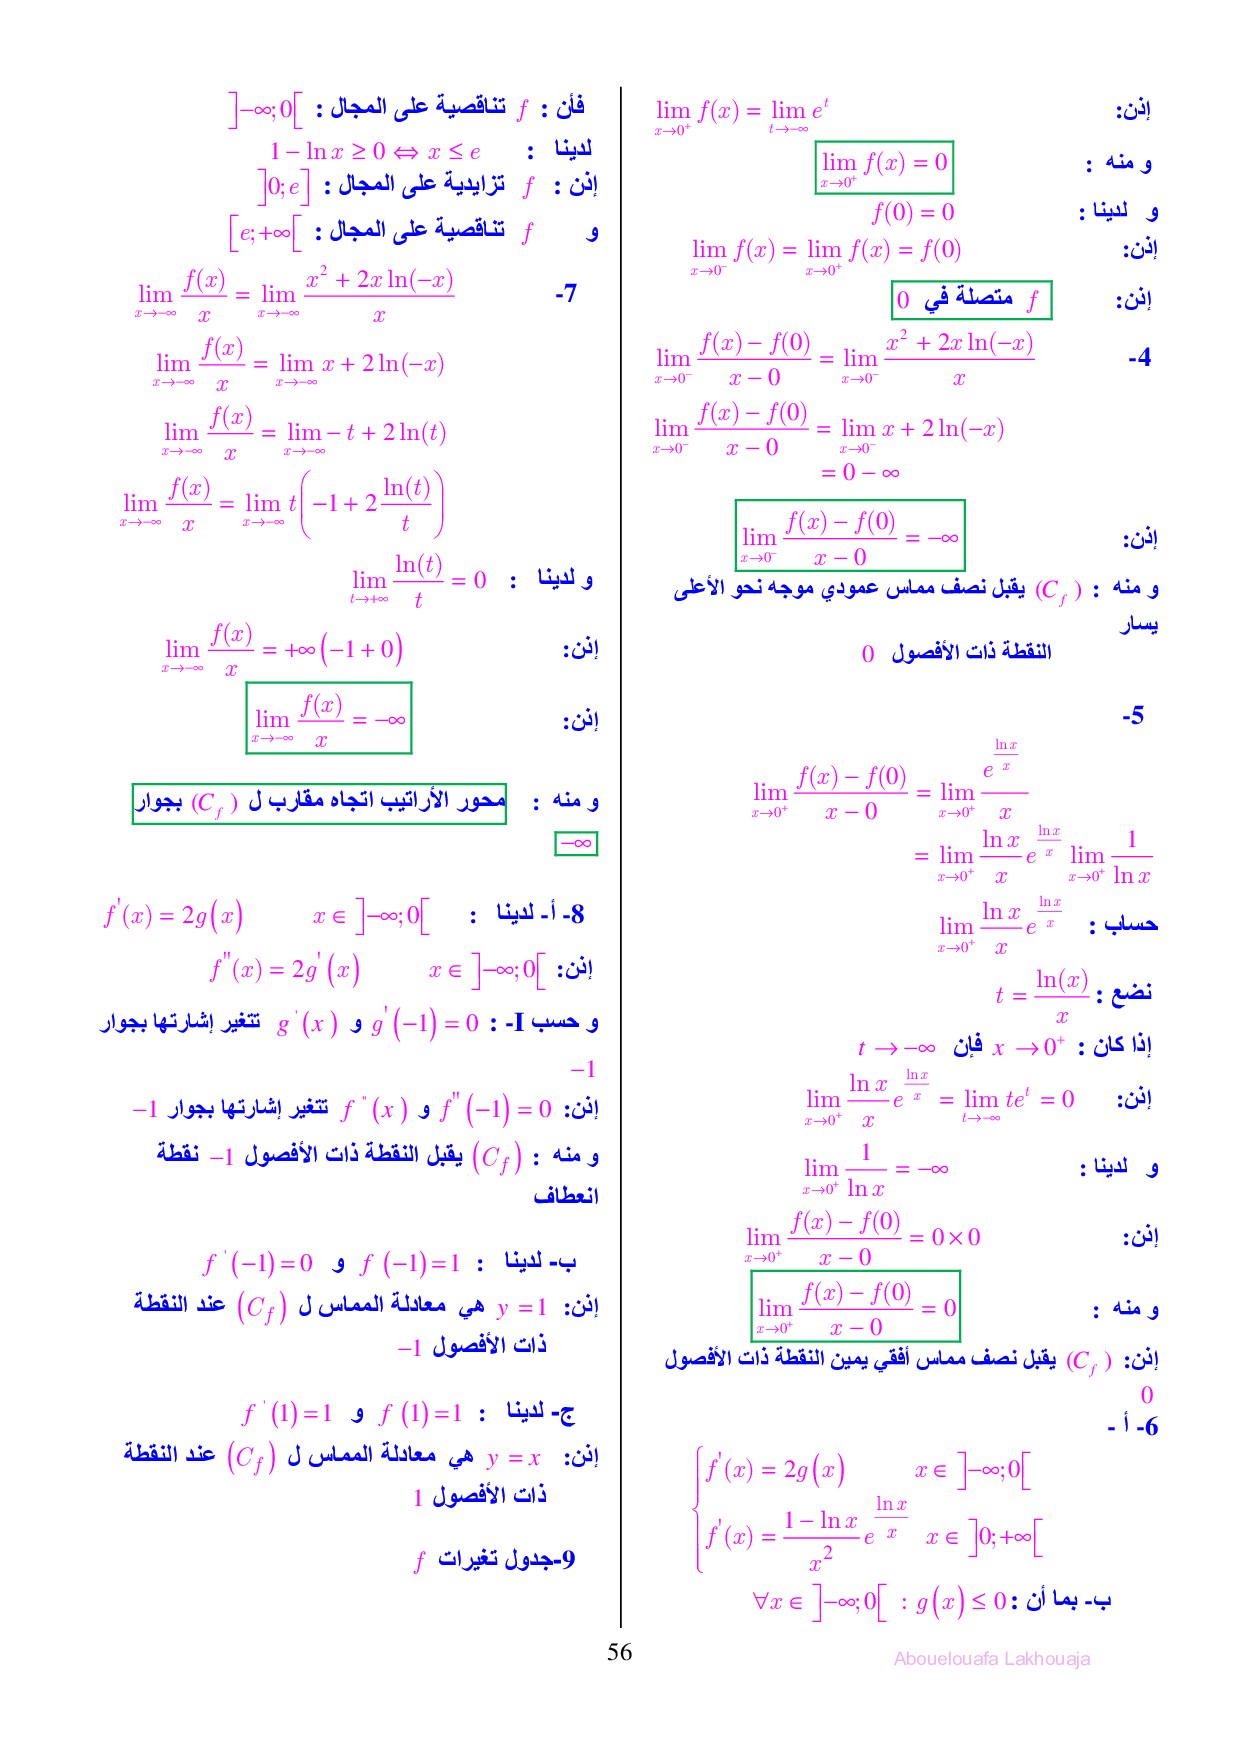 إذن: $\lim_{x \to 0^+} f(x) = \lim_{t \to -\infty} e^t$
و منه : $\lim_{x \to 0^+} f(x) = 0$
و لدينا : $f(0) = 0$
إذن: $\lim_{x \to 0^-} f(x) = \lim_{x \to 0^+} f(x) = f(0)$
إذن: $f$ متصلة في 0
4- $\lim_{x \to 0^-} \frac{f(x) - f(0)}{x - 0} = \lim_{x \to 0^-} \frac{x^2 + 2x \ln(-x)}{x}$
$\lim_{x \to 0^-} \frac{f(x) - f(0)}{x - 0} = \lim_{x \to 0^-} x + 2\ln(-x)$
$= 0 - \infty$
إذن: $\lim_{x \to 0^-} \frac{f(x) - f(0)}{x - 0} = -\infty$
و منه : $(C_f)$ يقبل نصف مماس عمودي موجه نحو الأعلى
يسار
النقطة ذات الأفصول 0
5-
$\lim_{x \to 0^+} \frac{f(x) - f(0)}{x - 0} = \lim_{x \to 0^+} \frac{e^{\frac{\ln x}{x}}}{x}$
$= \lim_{x \to 0^+} \frac{\ln x}{x} e^{\frac{\ln x}{x}} \lim_{x \to 0^+} \frac{1}{\ln x}$
حساب : $\lim_{x \to 0^+} \frac{\ln x}{x} e^{\frac{\ln x}{x}}$
نضع : $t = \frac{\ln(x)}{x}$
إذا كان : $x \to 0^+$ فإن $t \to -\infty$
إذن: $\lim_{x \to 0^+} \frac{\ln x}{x} e^{\frac{\ln x}{x}} = \lim_{t \to -\infty} te^t = 0$
و لدينا : $\lim_{x \to 0^+} \frac{1}{\ln x} = -\infty$
إذن: $\lim_{x \to 0^+} \frac{f(x) - f(0)}{x - 0} = 0 \times 0$
و منه : $\lim_{x \to 0^+} \frac{f(x) - f(0)}{x - 0} = 0$
إذن: $(C_f)$ يقبل نصف مماس أفقي يمين النقطة ذات الأفصول
0
6- أ -
$\begin{cases} f'(x) = 2g(x) & x \in ]-\infty;0[ \\ f'(x) = \frac{1 - \ln x}{x^2} e^{\frac{\ln x}{x}} & x \in ]0;+\infty[ \end{cases}$
ب- بما أن : $\forall x \in ]-\infty;0[ : g(x) \le 0$
فأن : $f$ تناقصية على المجال : $]-\infty;0[$
لدينا : $1 - \ln x \ge 0 \Leftrightarrow x \le e$
إذن : $f$ تزايدية على المجال : $]0;e]$
و $f$ تناقصية على المجال : $[e;+\infty[$
7- $\lim_{x \to -\infty} \frac{f(x)}{x} = \lim_{x \to -\infty} \frac{x^2 + 2x \ln(-x)}{x}$
$\lim_{x \to -\infty} \frac{f(x)}{x} = \lim_{x \to -\infty} x + 2\ln(-x)$
$\lim_{x \to -\infty} \frac{f(x)}{x} = \lim_{x \to -\infty} -t + 2\ln(t)$
$\lim_{x \to -\infty} \frac{f(x)}{x} = \lim_{x \to -\infty} t\left(-1 + 2\frac{\ln(t)}{t}\right)$
و لدينا : $\lim_{t \to +\infty} \frac{\ln(t)}{t} = 0$
إذن: $\lim_{x \to -\infty} \frac{f(x)}{x} = +\infty(-1 + 0)$
إذن: $\lim_{x \to -\infty} \frac{f(x)}{x} = -\infty$
و منه : محور الأراتيب اتجاه مقارب ل $(C_f)$ بجوار
$-\infty$
8- أ- لدينا : $x \in ]-\infty;0[$ $f'(x) = 2g(x)$
إذن: $x \in ]-\infty;0[$ $f''(x) = 2g'(x)$
و حسب I- : $g'(-1) = 0$ و $g'(x)$ تتغير إشارتها بجوار
$-1$
إذن: $f''(-1) = 0$ و $f''(x)$ تتغير إشارتها بجوار $-1$
و منه : $(C_f)$ يقبل النقطة ذات الأفصول $-1$ نقطة
انعطاف
ب- لدينا : $f(-1) = 1$ و $f'(-1) = 0$
إذن: $y = 1$ هي معادلة المماس ل $(C_f)$ عند النقطة
ذات الأفصول $-1$
ج- لدينا : $f(1) = 1$ و $f'(1) = 1$
إذن: $y = x$ هي معادلة المماس ل $(C_f)$ عند النقطة
ذات الأفصول 1
9-جدول تغيرات $f$
56
Abouelouafa Lakhouaja